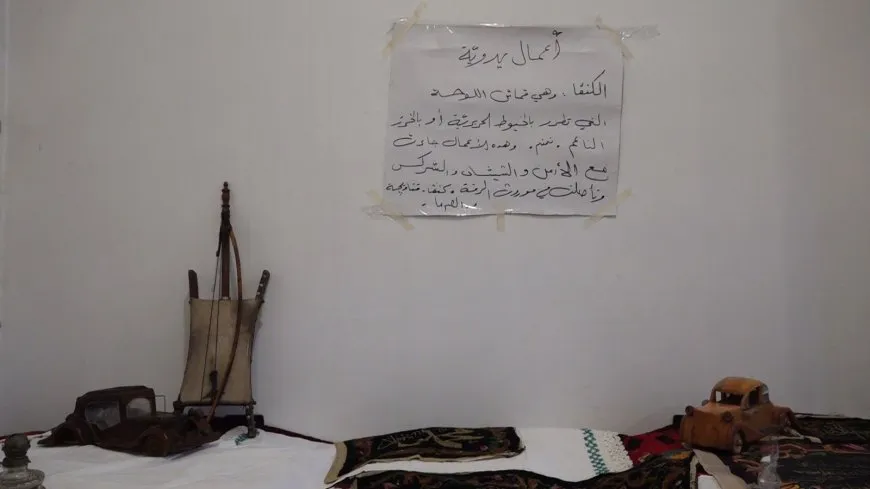 أعمال يدويّة
الكنفا. وهي قماش اللوحة
التي تطرز بالخيوط الحريريّة أو بالخرز
الناعم. نمنم. وهذه الأعمال جاءت
مع الأرمن والشيشان والشركس
وتأصلت في موروث الرقة. كنفا.